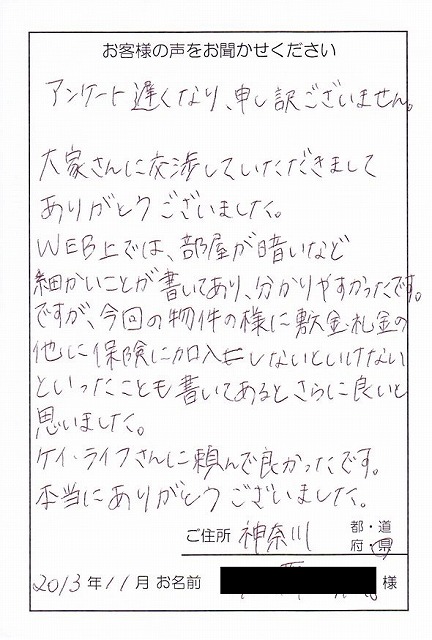 お客様の声をお聞かせください
アンケート遅くなり、申し訳ございません。
大家さんに交渉していただきまして
ありがとうございました。
WEB上では、部屋が暗いなど
細かいことが書いてあり、分かりやすかったです。
ですが、今回の物件の様に敷金・礼金の
他に保険に加入をしないといけない
といったことも書いてあるとさらに良いと
思いました。
ケイ・ライフさんに頼んで良かったです。
本当にありがとうございました。
ご住所 神奈川 都・道
府・県
2013年11月 お名前 様